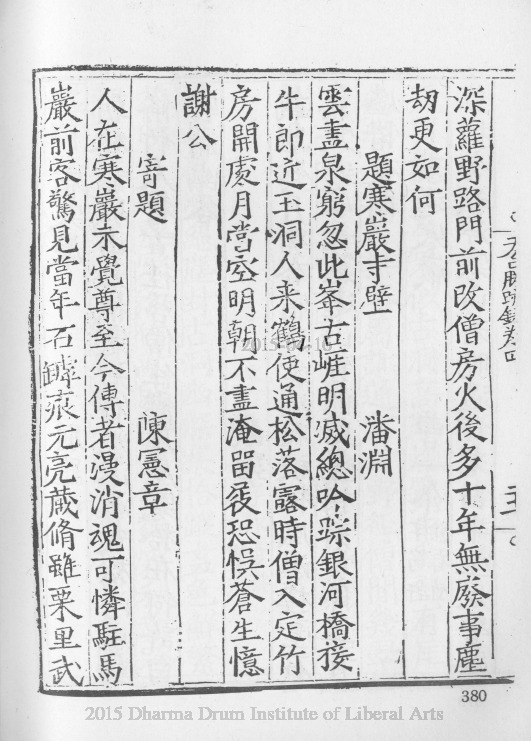 深蘿野路門前改僧房火後多十年無廢事塵
刼更如何
題寒巖寺壁　潘淵
雲盡泉窮忽此峯古崕明滅總吟踪銀河橋接
牛郎近玉洞人来鶴使通松落露時僧入定竹
房開處月當空明朝不盡淹留發恐悮蒼生憶
謝公
寄題　陳憲章
人在寒巖未覺尊至今傳者漫消魂可憐駐馬
巖前客驚見當年石罅痕元亮菴脩雖栗里武
天台勝蹟錄卷四
380
2015 Dharma Drum Institute of Liberal Arts